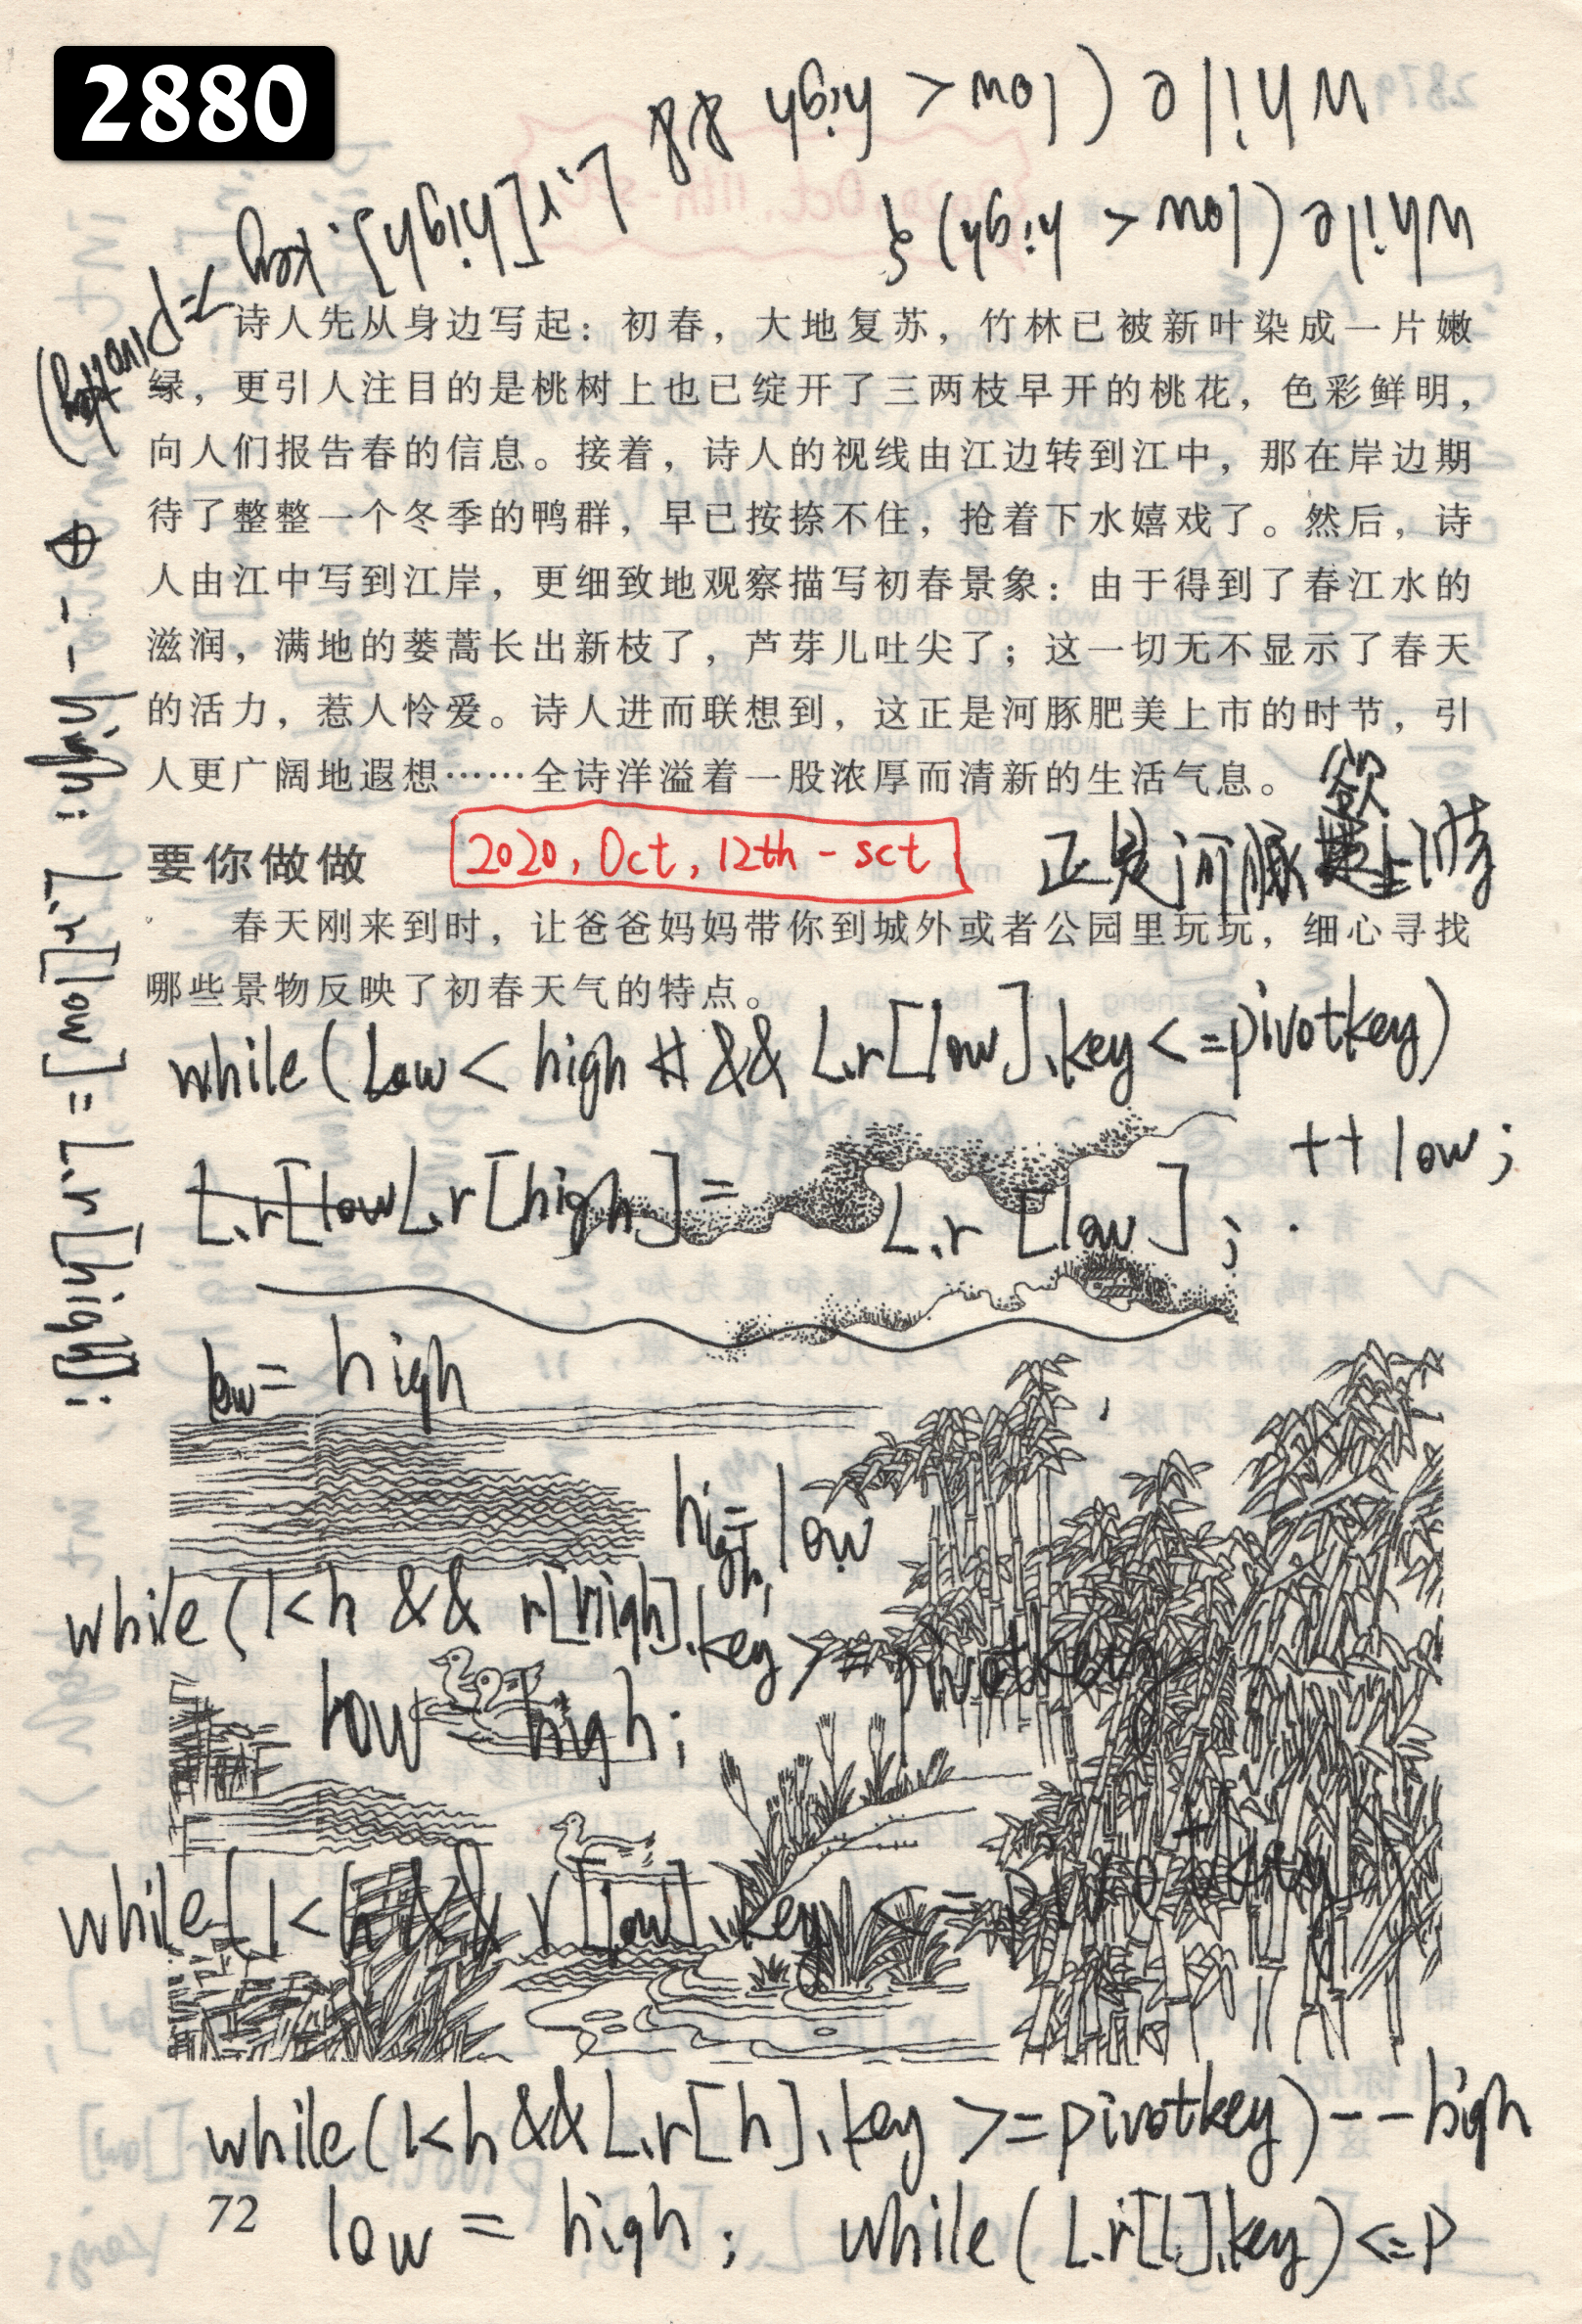 2880
while (low < high &&
L.r[high].key
>= pivotkey)
while (low < high) {
诗人先从身边写起：初春，大地复苏，竹林已被新叶染成一片嫩
绿，更引人注目的是桃树上也已绽开了三两枝早开的桃花，色彩鲜明，
向人们报告春的信息。接着，诗人的视线由江边转到江中，那在岸边期
待了整整一个冬季的鸭群，早已按捺不住，抢着下水嬉戏了。然后，诗
人由江中写到江岸，更细致地观察描写初春景象：由于得到了春江水的
滋润，满地的蒌蒿长出新枝了，芦芽儿吐尖了；这一切无不显示了春天
的活力，惹人怜爱。诗人进而联想到，这正是河豚肥美上市的时节，引
人更广阔地遐想……全诗洋溢着一股浓厚而清新的生活气息。
--high;
L.r[low] = L.r[high];
欲
正是河豚上时
要你做做
2020, Oct, 12th - sct
春天刚来到时，让爸爸妈妈带你到城外或者公园里玩玩，细心寻找
哪些景物反映了初春天气的特点。
while (Low < high && L.r[low].key <= pivotkey)
++low;
L.r[low L.r[high] = L.r[low];
low = high
high = low
while (l<h && r[high].key >= pivotkey
low high;
while (l<h && r[low].key <= pivotkey
while (l<h && L.r[h].key >= pivotkey) --high
low = high; while (L.r[l].key) <= p
72